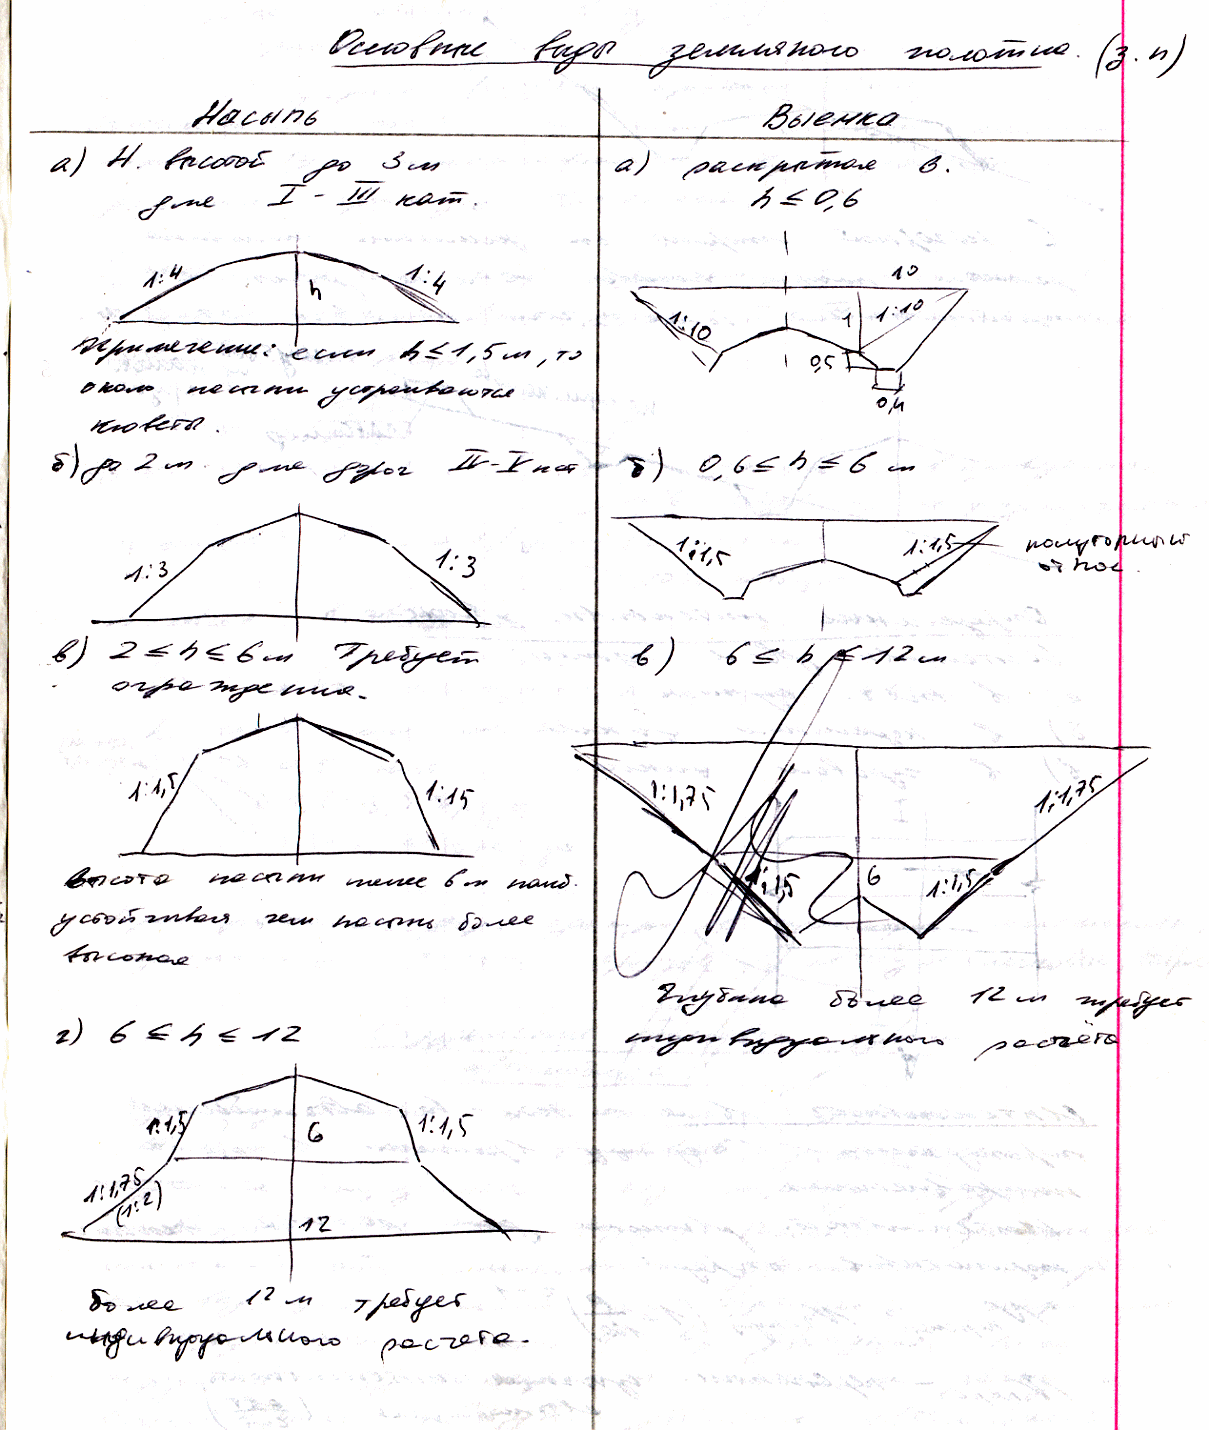 Основные виды земляного полотна. (з.п)
Насыпь
а) Н. высотой до 3 м
для I - III кат.
1:4
1:4
h
Примечание: если h ≤ 1,5 м, то
около насыпи устраиваются
кюветы.
б) до 2 м для дорог IV-V кат
1:3
1:3
в) 2 ≤ h ≤ 6 м Требует
ограждения.
1:1,5
1:15
Высота насыпи менее 6 м наиб.
устойчивая чем насыпь более
высокая
г) 6 ≤ h ≤ 12
1:1,5
6
1:1,5
1:1,75
(1:2)
12
более 12 м требует
индивидуального расчета.
Выемка
а) раскрытая в.
h ≤ 0,6
10
1:10
1
1:10
0,5
0,4
б) 0,6 ≤ h ≤ 6 м
1:1,5
1:1,5
полуторный
откос.
в) 6 ≤ h ≤ 12 м
1:1,75
1:1,75
1:1,5
6
1:1,5
Глубина более 12 м требует
индивидуального расчёта